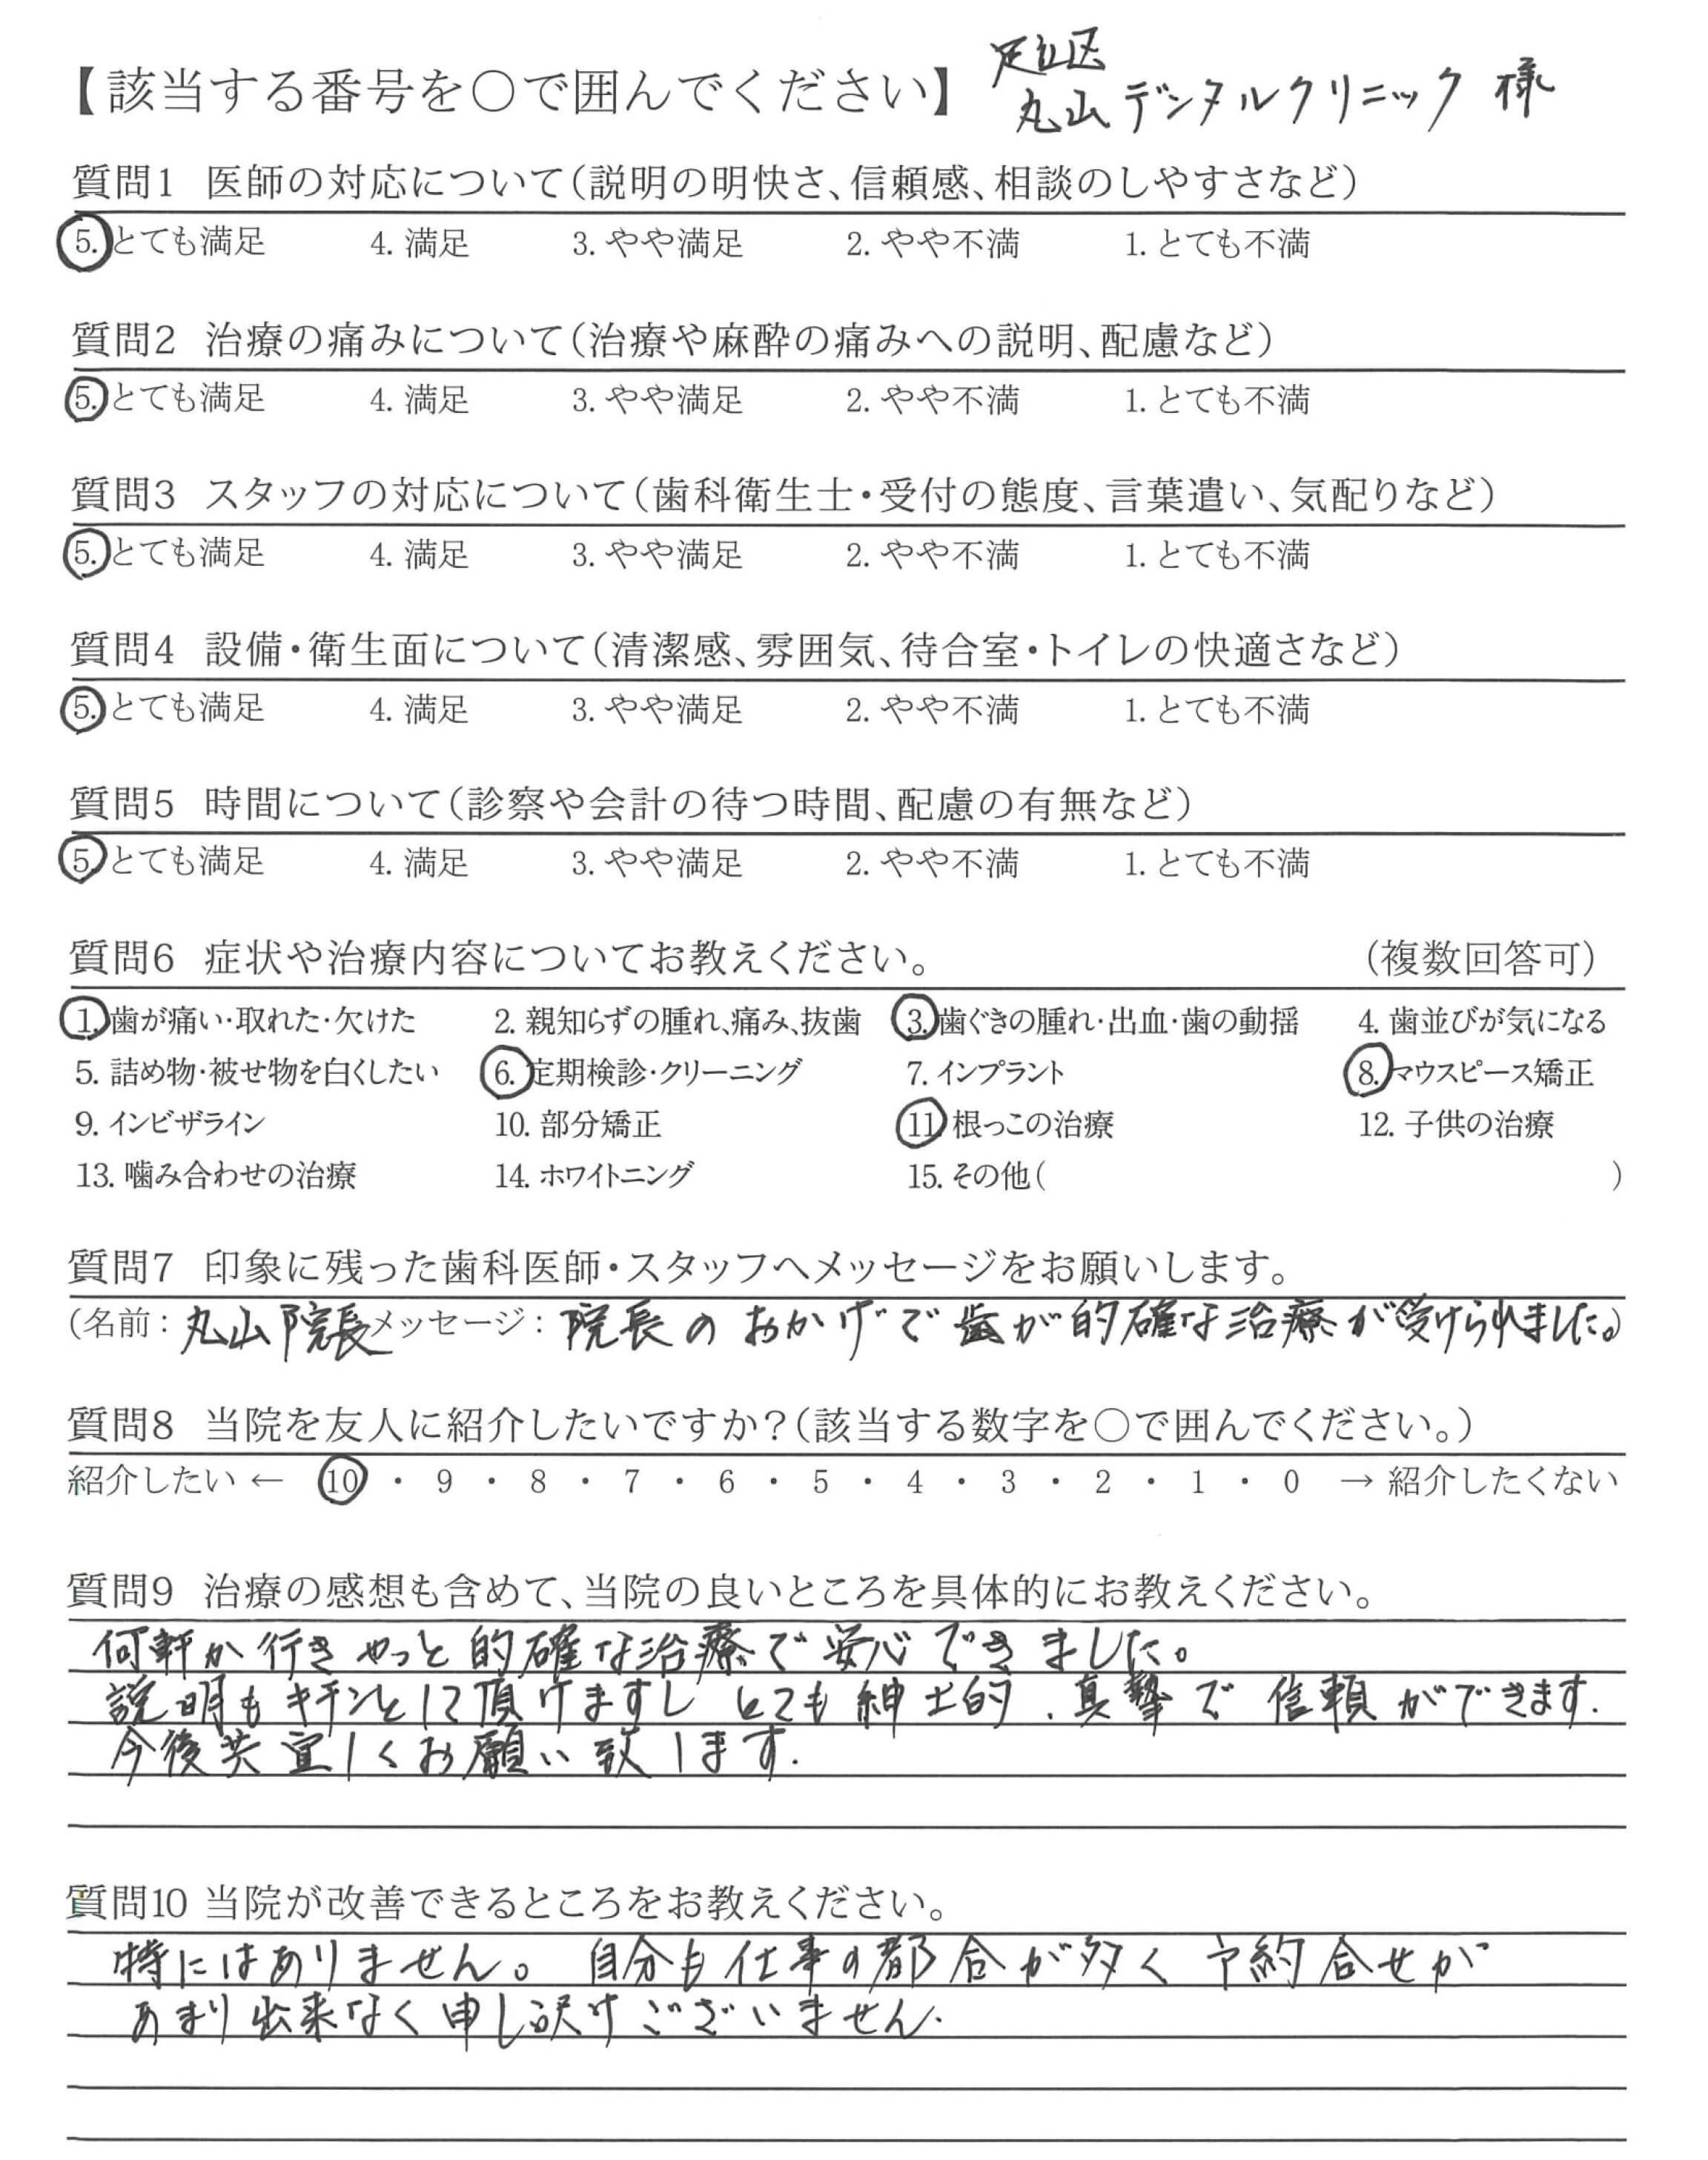 【該当する番号を○で囲んでください】 足立区
丸山デンタルクリニック 様
質問1 医師の対応について(説明の明快さ、信頼感、相談のしやすさなど)
5. とても満足 4. 満足 3. やや満足 2. やや不満 1. とても不満
質問2 治療の痛みについて(治療や麻酔の痛みへの説明、配慮など)
5. とても満足 4. 満足 3. やや満足 2. やや不満 1. とても不満
質問3 スタッフの対応について(歯科衛生士・受付の態度、言葉遣い、気配りなど)
5. とても満足 4. 満足 3. やや満足 2. やや不満 1. とても不満
質問4 設備・衛生面について(清潔感、雰囲気、待合室・トイレの快適さなど)
5. とても満足 4. 満足 3. やや満足 2. やや不満 1. とても不満
質問5 時間について(診察や会計の待つ時間、配慮の有無など)
5. とても満足 4. 満足 3. やや満足 2. やや不満 1. とても不満
質問6 症状や治療内容についてお教えください。 (複数回答可)
1. 歯が痛い・取れた・欠けた 2. 親知らずの腫れ、痛み、抜歯 3. 歯ぐきの腫れ・出血・歯の動揺 4. 歯並びが気になる
5. 詰め物・被せ物を白くしたい 6. 定期検診・クリーニング 7. インプラント 8. マウスピース矯正
9. インビザライン 10. 部分矯正 11. 根っこの治療 12. 子供の治療
13. 噛み合わせの治療 14. ホワイトニング 15. その他( )
質問7 印象に残った歯科医師・スタッフへメッセージをお願いします。
(名前: 丸山院長 メッセージ: 院長のおかげで歯が的確な治療が受けられました。)
質問8 当院を友人に紹介したいですか?(該当する数字を○で囲んでください。)
紹介したい ← 10 ・ 9 ・ 8 ・ 7 ・ 6 ・ 5 ・ 4 ・ 3 ・ 2 ・ 1 ・ 0 → 紹介したくない
質問9 治療の感想も含めて、当院の良いところを具体的にお教えください。
何軒か行きやっと的確な治療で安心できました。
説明もキチンとして頂けますしとても紳士的、真摯で信頼ができます.
今後共宜しくお願い致します.
質問10 当院が改善できるところをお教えください。
特にはありません。自分も仕事の都合が多く予約合せが
あまり出来なく申し訳けございません.